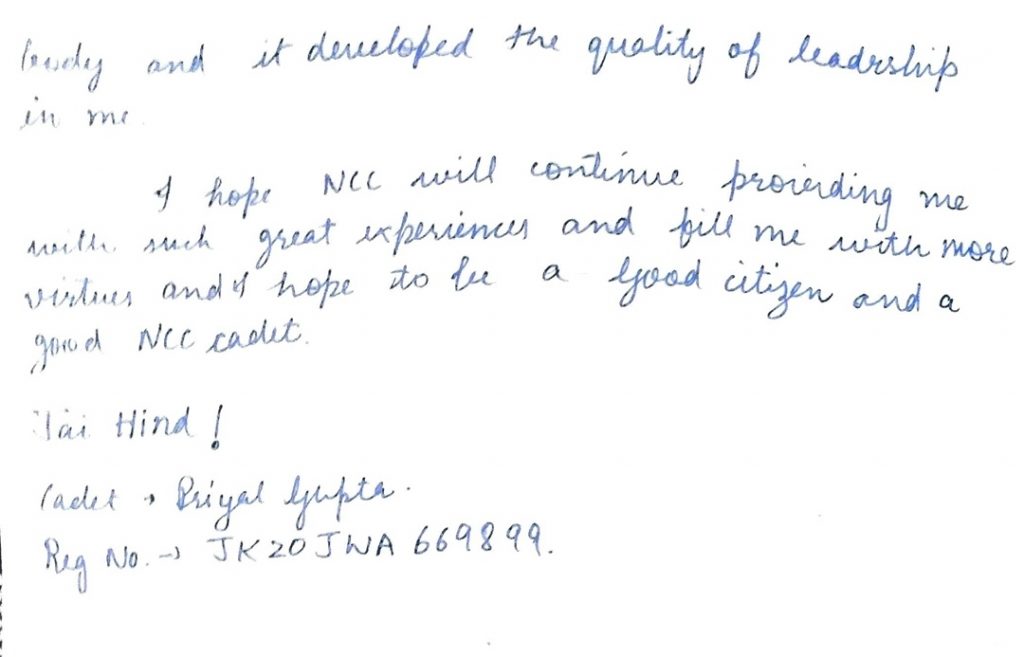 body and it developed the quality of leadership
in me.
I hope NCC will continue proividing me
with such great experiences and fill me with more
virtues and I hope to be a good citizen and a
good NCC cadet.
Jai Hind!
Cadet → Priyal Gupta.
Reg No. → JK20JWA 669899.